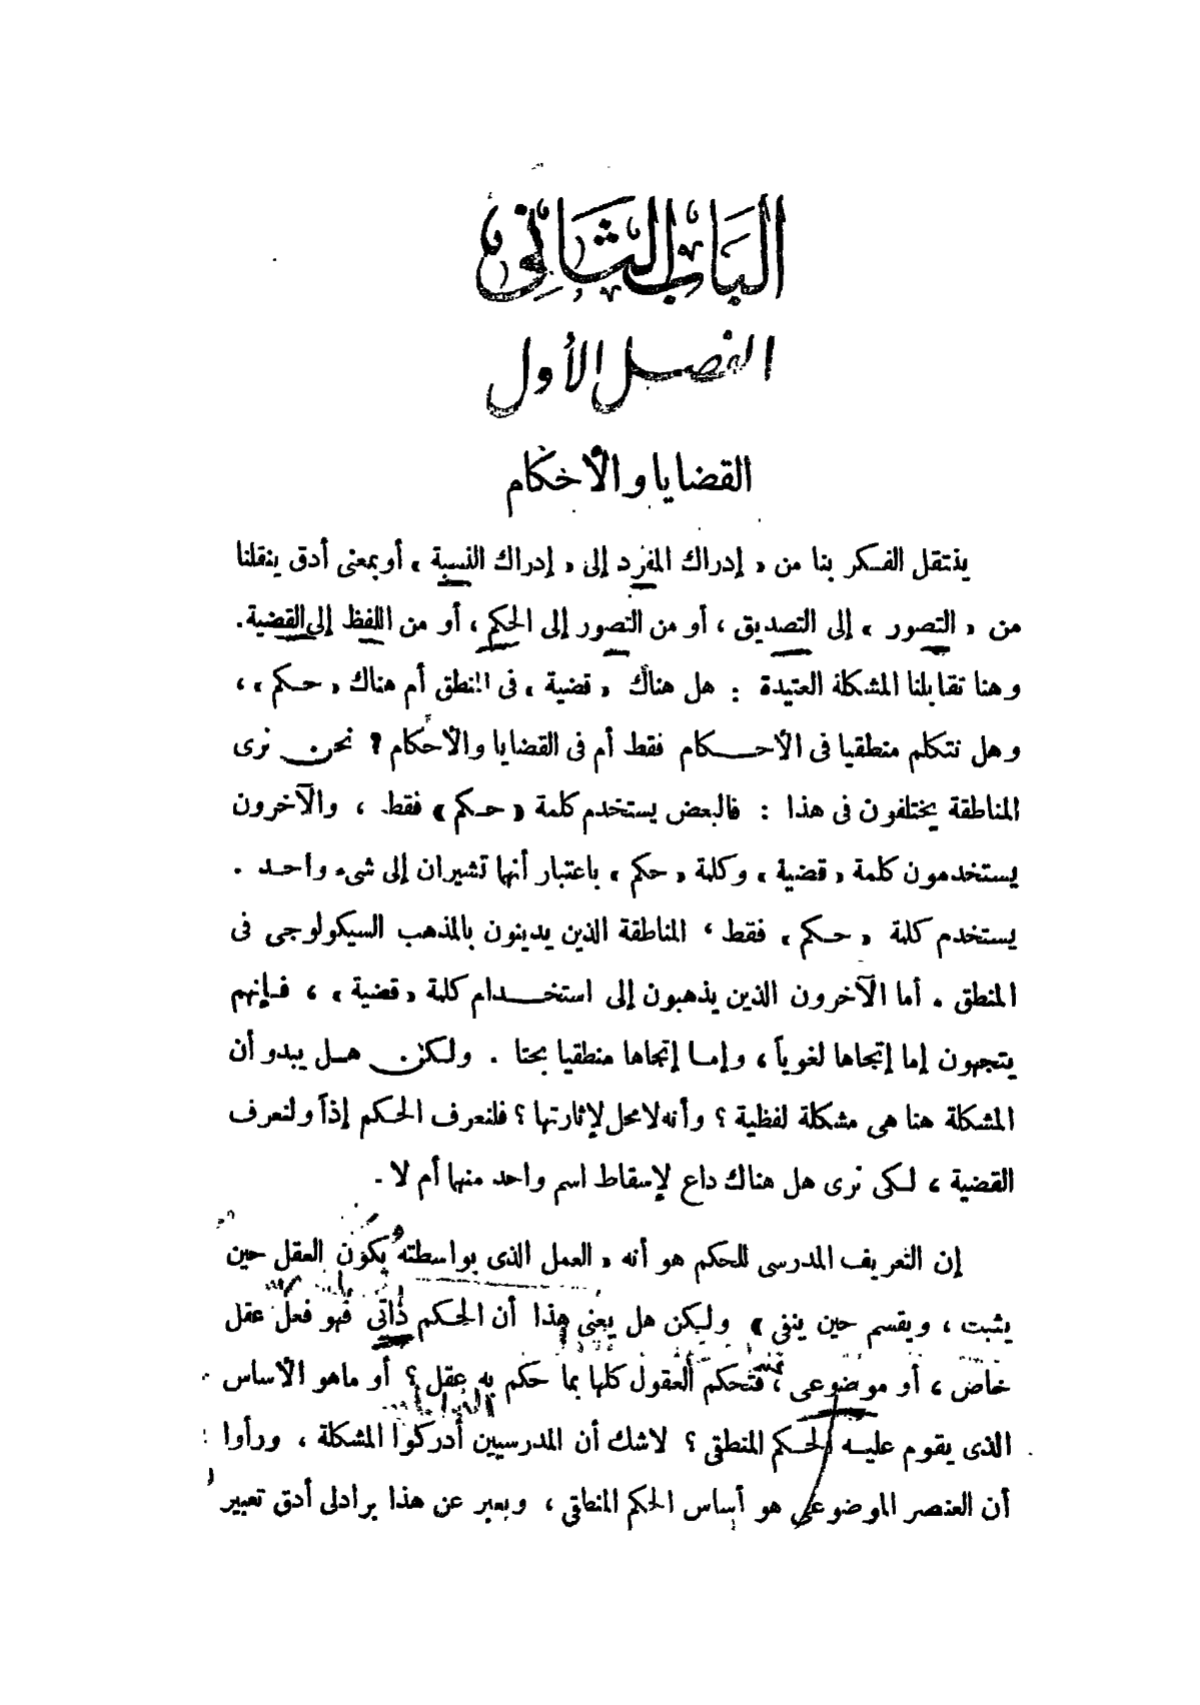 الباب الثاني
الفصل الأول
القضايا والأحكام
ينتقل الفكر بنا من « إدراك المفرد إلى « إدراك النسبة » أو بمعنى أدق ينقلنا
من « التصور » إلى التصديق ، أو من التصور إلى الحكم ، أو من اللفظ إلى القضية .
وهنا تقابلنا المشكلة العتيدة : هل هناك « قضية » فى المنطق أم هناك « حكم » ،
وهل نتكلم منطقيا فى الأحكام فقط أم فى القضايا والأحكام ؟ نحن نرى
المناطقة يختلفون فى هذا : فالبعض يستخدم كلمة « حكم » فقط ، والآخرون
يستخدمون كلمة « قضية » وكلمة « حكم » باعتبار أنها تشيران إلى شىء واحد .
يستخدم كلمة « حكم » فقط ، المناطقة الذين يدينون بالمذهب السيكولوجى فى
المنطق . أما الآخرون الذين يذهبون إلى استخدام كلمة « قضية » ، فإنهم
يتجهون إما إتجاها لغوياً ، وإما إتجاها منطقيا بحتا . ولكن هل يبدو أن
المشكلة هنا هى مشكلة لفظية ؟ وأنه لا محل لإثارتها ؟ فلنعرف الحكم إذاً ولنعرف
القضية ، لكى نرى هل هناك داع لإسقاط اسم واحد منها أم لا .
إن التعريف المدرسى للحكم هو أنه « العمل الذى بواسطته يكون العقل حين
يثبت ، ويقسم حين ينفى » ولكن هل يعنى هذا أن الحكم ذاتى فهو فعل عقل
خاص ، أو موضوعى ، فتحكم العقول كلها بما حكم به عقل ؟ أو ماهو الأساس
الذى يقوم عليه الحكم المنطقى ؟ لاشك أن المدرسيين أدركوا المشكلة ، ورأوا
أن العنصر الموضوعى هو أساس الحكم المنطقى ، ويعبر عن هذا برادلى أدق تعبير